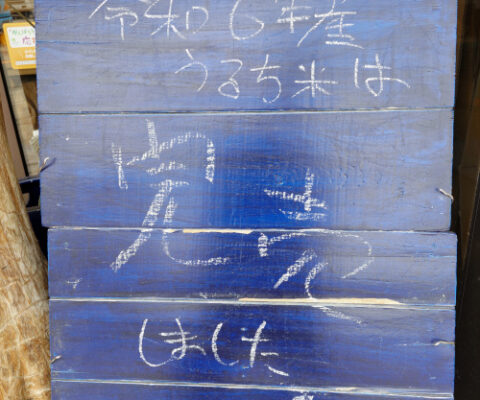 令和6年産
うるち米は
完売
しました